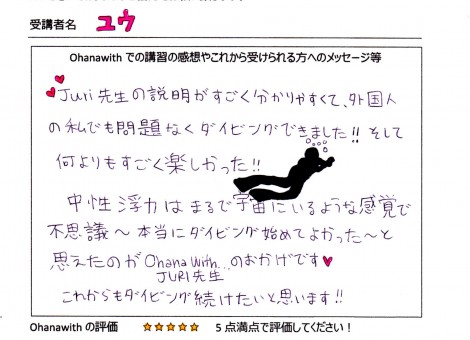 受講者名 ユウ
Ohanawith での講習の感想やこれから受けられる方へのメッセージ等
Juri先生の説明がすごく分かりやすくて、外国人
の私でも問題なくダイビングできました!! そして
何よりもすごく楽しかった!!
中性浮力はまるで宇宙にいるような感覚で
不思議〜本当にダイビング始めてよかった〜と
思えたのがOhana with...のおかげです
JURI先生
これからもダイビング続けたいと思います!!
Ohanawith の評価 ☆☆☆☆☆ 5 点満点で評価してください！